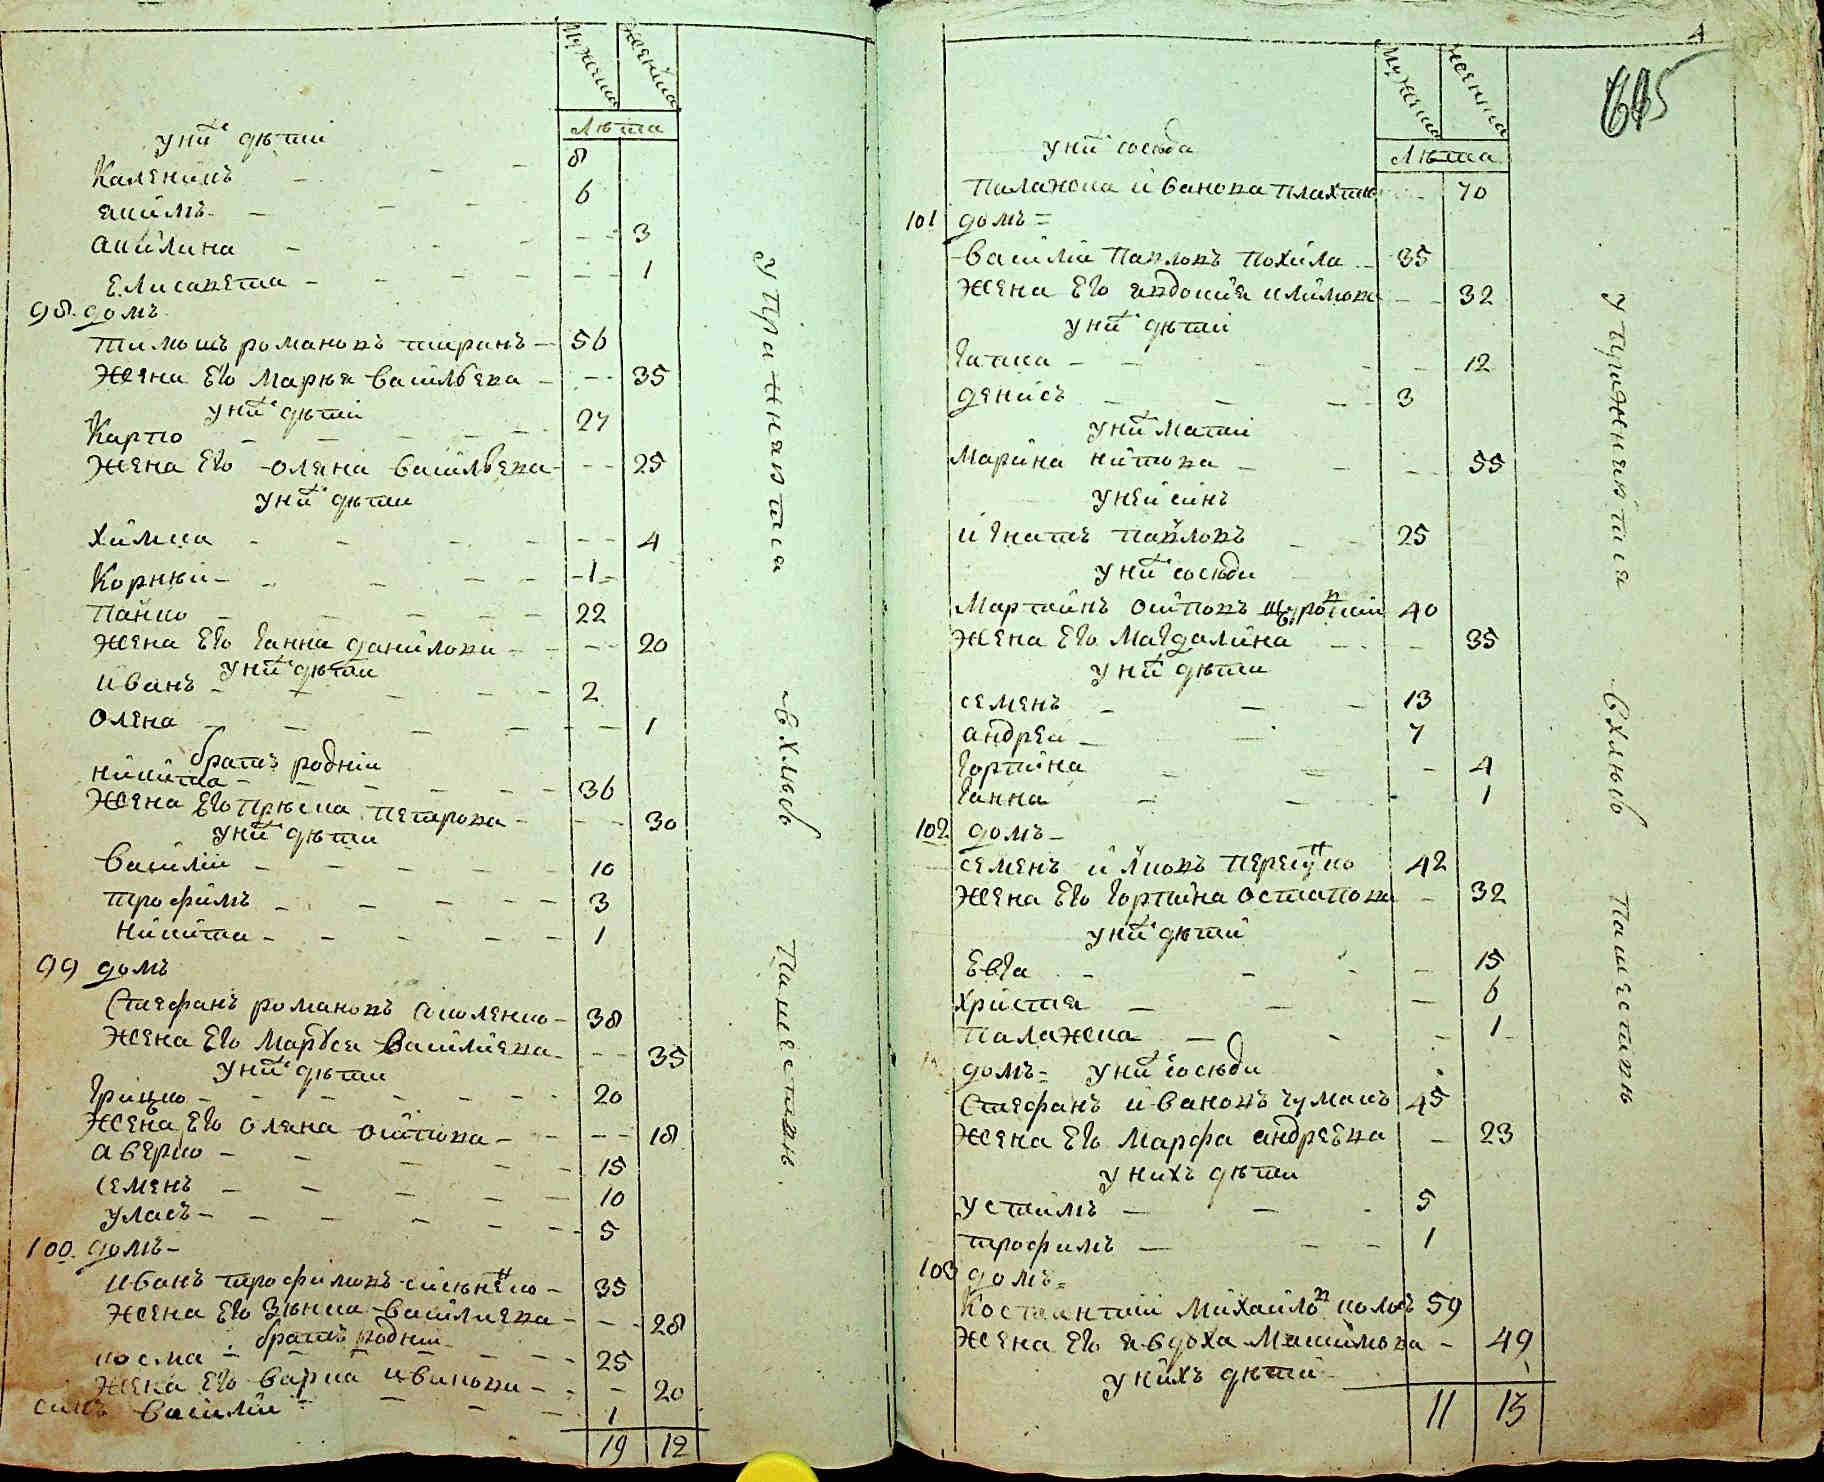 Мужеска Женска
Лѣта
у ни^х дѣти
Каленикъ 8
якимъ 6
акилина 3
Елисавета 1
98. домъ
тимошъ романовъ таранъ 56
жена Его Марья василъева 35
у ни^х дѣти
Карпо 27
жена Его оляна василъева 25
у ни^х дѣти
химка 4
Корнѣй 1
панко 22
жена Его ганна данилова 20
у ни^х дѣти
иванъ 2
олена 1
братъ роднiй
никита 36
жена Его петрова 30
у ни^х дѣти
василiй 10
трофимъ 3
никита 1
99 домъ
Стефанъ романовъ соколенко 38
жена Его Маруся василиева 35
у ни^х дѣти
грицко 20
жена Его оляна осипова 18
аверко 15
семенъ 10
уласъ 5
100. домъ
иванъ трофимовъ 35
жена Его Зѣнка василиева 28
братъ роднiй
косма 25
жена Его варка иванова 20
синъ василiй 1
19 12
упражняются
в хлѣб
пашествѣ
4
Мужеска Женска
Лѣта
у ни^х сосѣда
палажка иванова 70
101 домъ
василiй павловъ похила 35
жена Его явдокия климова 32
у ни^х дѣти
гапка 12
денисъ 3
у ни^х мати
марина никитова 55
у неи синъ
игнатъ павловъ 25
у ни^х сосѣди
мартинъ осиповъ 40
жена Его магдалина 35
у ни^х дѣти
семенъ 13
андреи 7
горпина 4
ганна 1
102. домъ
семенъ 42
жена Его горпина остапова 32
у ни^х дѣти
Евга 15
христя 6
палажка 1
домъ у ни^х сосѣди
Стефанъ ивановъ чумакъ 45
жена Его марфа андреева 23
у нихъ дѣти
устимъ 5
трофимъ 1
103 домъ
Костантiй михайло^в 59
жена Его явдоха максимова 49
у нихъ дѣти
11 13
упражняются
в хлѣб
пашествѣ